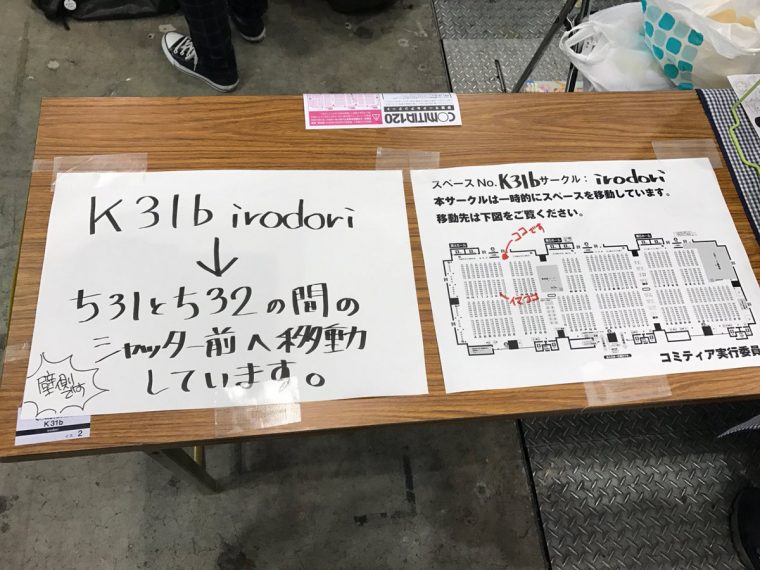 COMITIA120
K31b irodori
↓
ち31とち32の間の
シャッター前へ移動
しています。
壁側です
K31b
イス:2
スペースNo.K31bサークル：irodori
本サークルは一時的にスペースを移動しています。
移動先は下図をご覧ください。
ココです
イマココ
コミティア実行委員